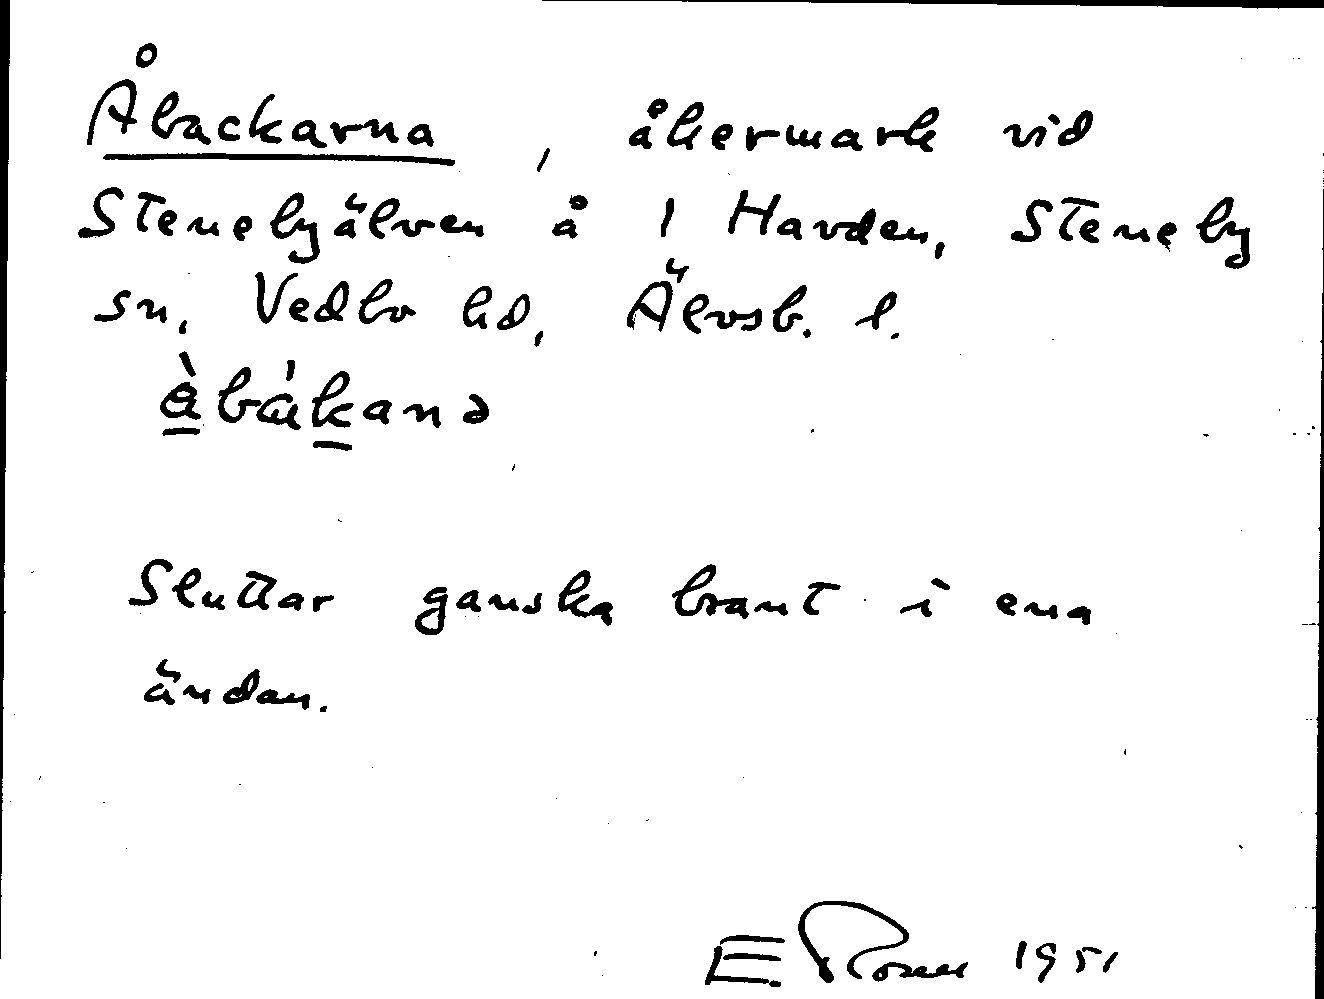 Åbackarna, åkermark vid
Stenebyälven å 1 Havden, Steneby
sn, Vedbo hd, Älvsb. l.
Sluttar ganska brant i ena
ändan.
E. Rosen 1951